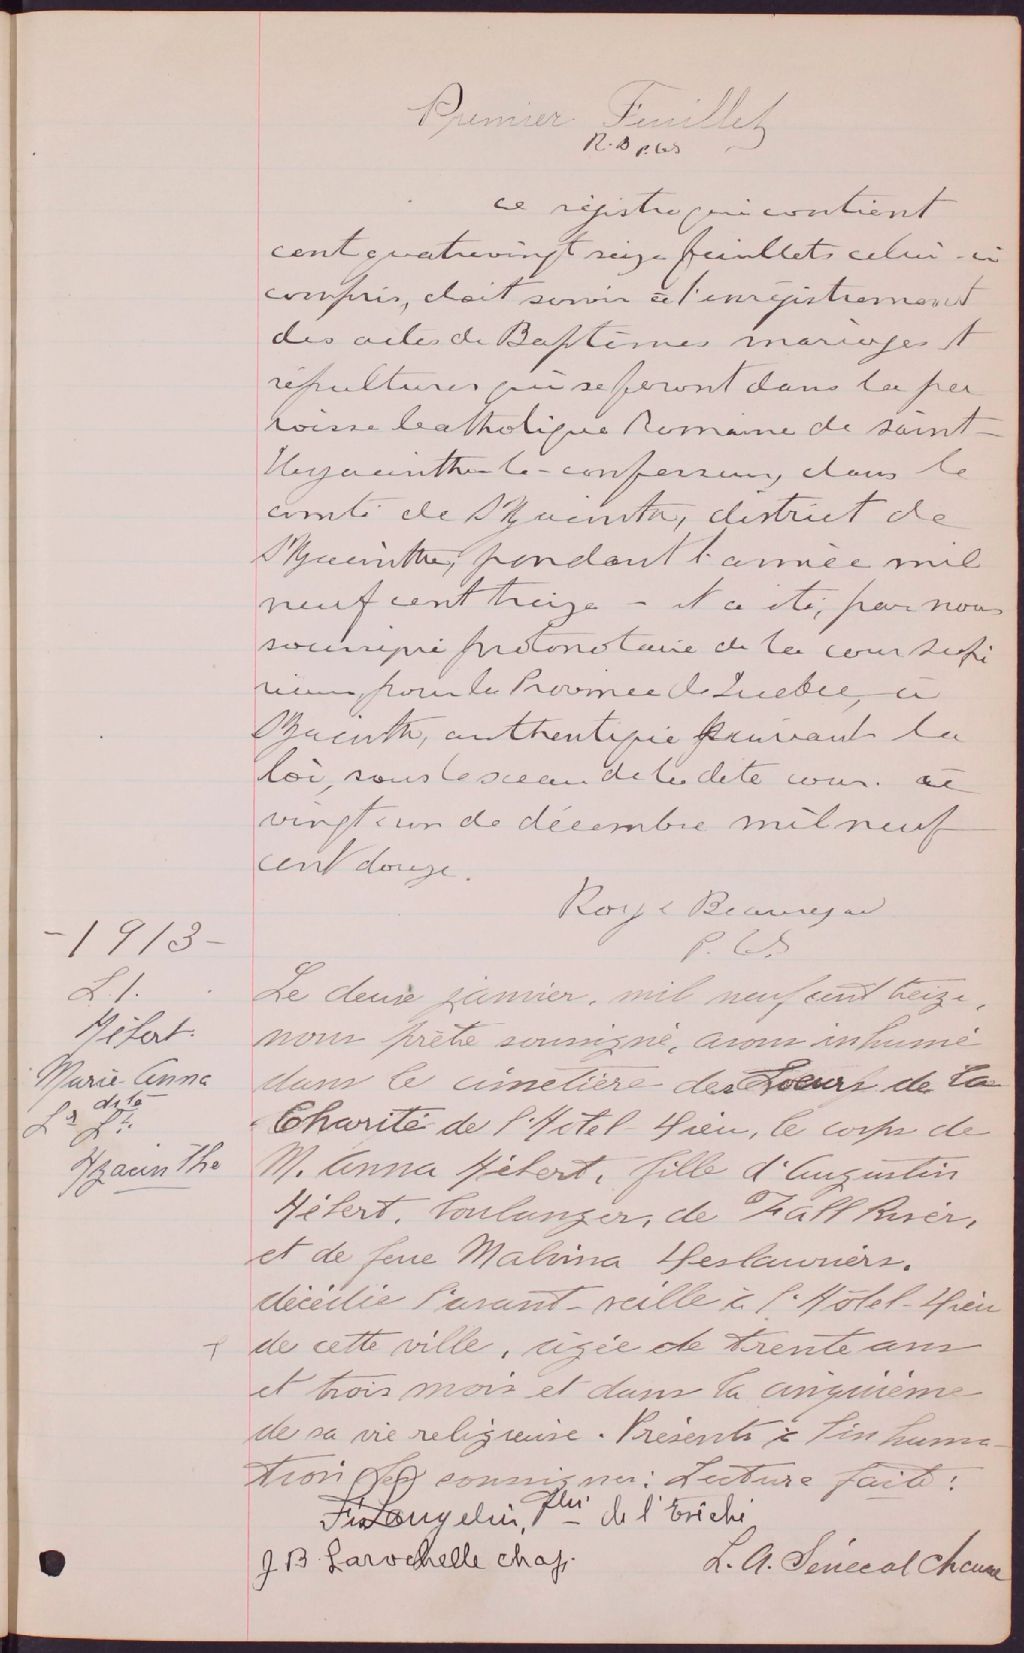 Premier Feuillet
R. B P.C.S
Ce régistre qui contient
cent quatrevingt seize feuillets celui-ci
compris, doit servir à l'enrégistrement
des actes de Baptêmes mariages et
sépultures qui se feront dans la pa
roisse Catholique Romaine de Saint-
Hyacinthe-le-confesseur, dans le
comté de St Hyacinthe, district de
St Hyacinthe, pendant l'année mil
neuf cent treize - et a été, par nous
soussigné protonotaire de la cour Supé
rieure, pour la Province de Québec, à
St Hyacinthe, authentiqué suivant la
loi, sous le sceau de la dite cour. ce
vingt un de décembre mil neuf
cent douze.
Roy & Beauregard
P. C. S.
-1913-
S. 1.
Hébert.
Marie-Anna
dite
Sr St.
Hyacinthe
Le deux janvier, mil neuf cent treize,
nous prêtre soussigné, avons inhumé
dans le cimetière des Soeurs de la
Charité de l'Hôtel-Dieu, le corps de
M. Anna Hébert, fille d'Augustin
Hébert, boulanger, de Fall River,
et de feue Malvina Deslauriers,
décédée l'avant-veille à l'Hôtel-Dieu
de cette ville, agée de trente ans
et trois mois et dans la cinquième
de sa vie religieuse. Présents à l'inhuma-
tion les soussignés: Lecture faite:
Frs Langelier, ptre de l'Evêché
J. B. Larochelle chap.
L. A. Sénécal Chanoine